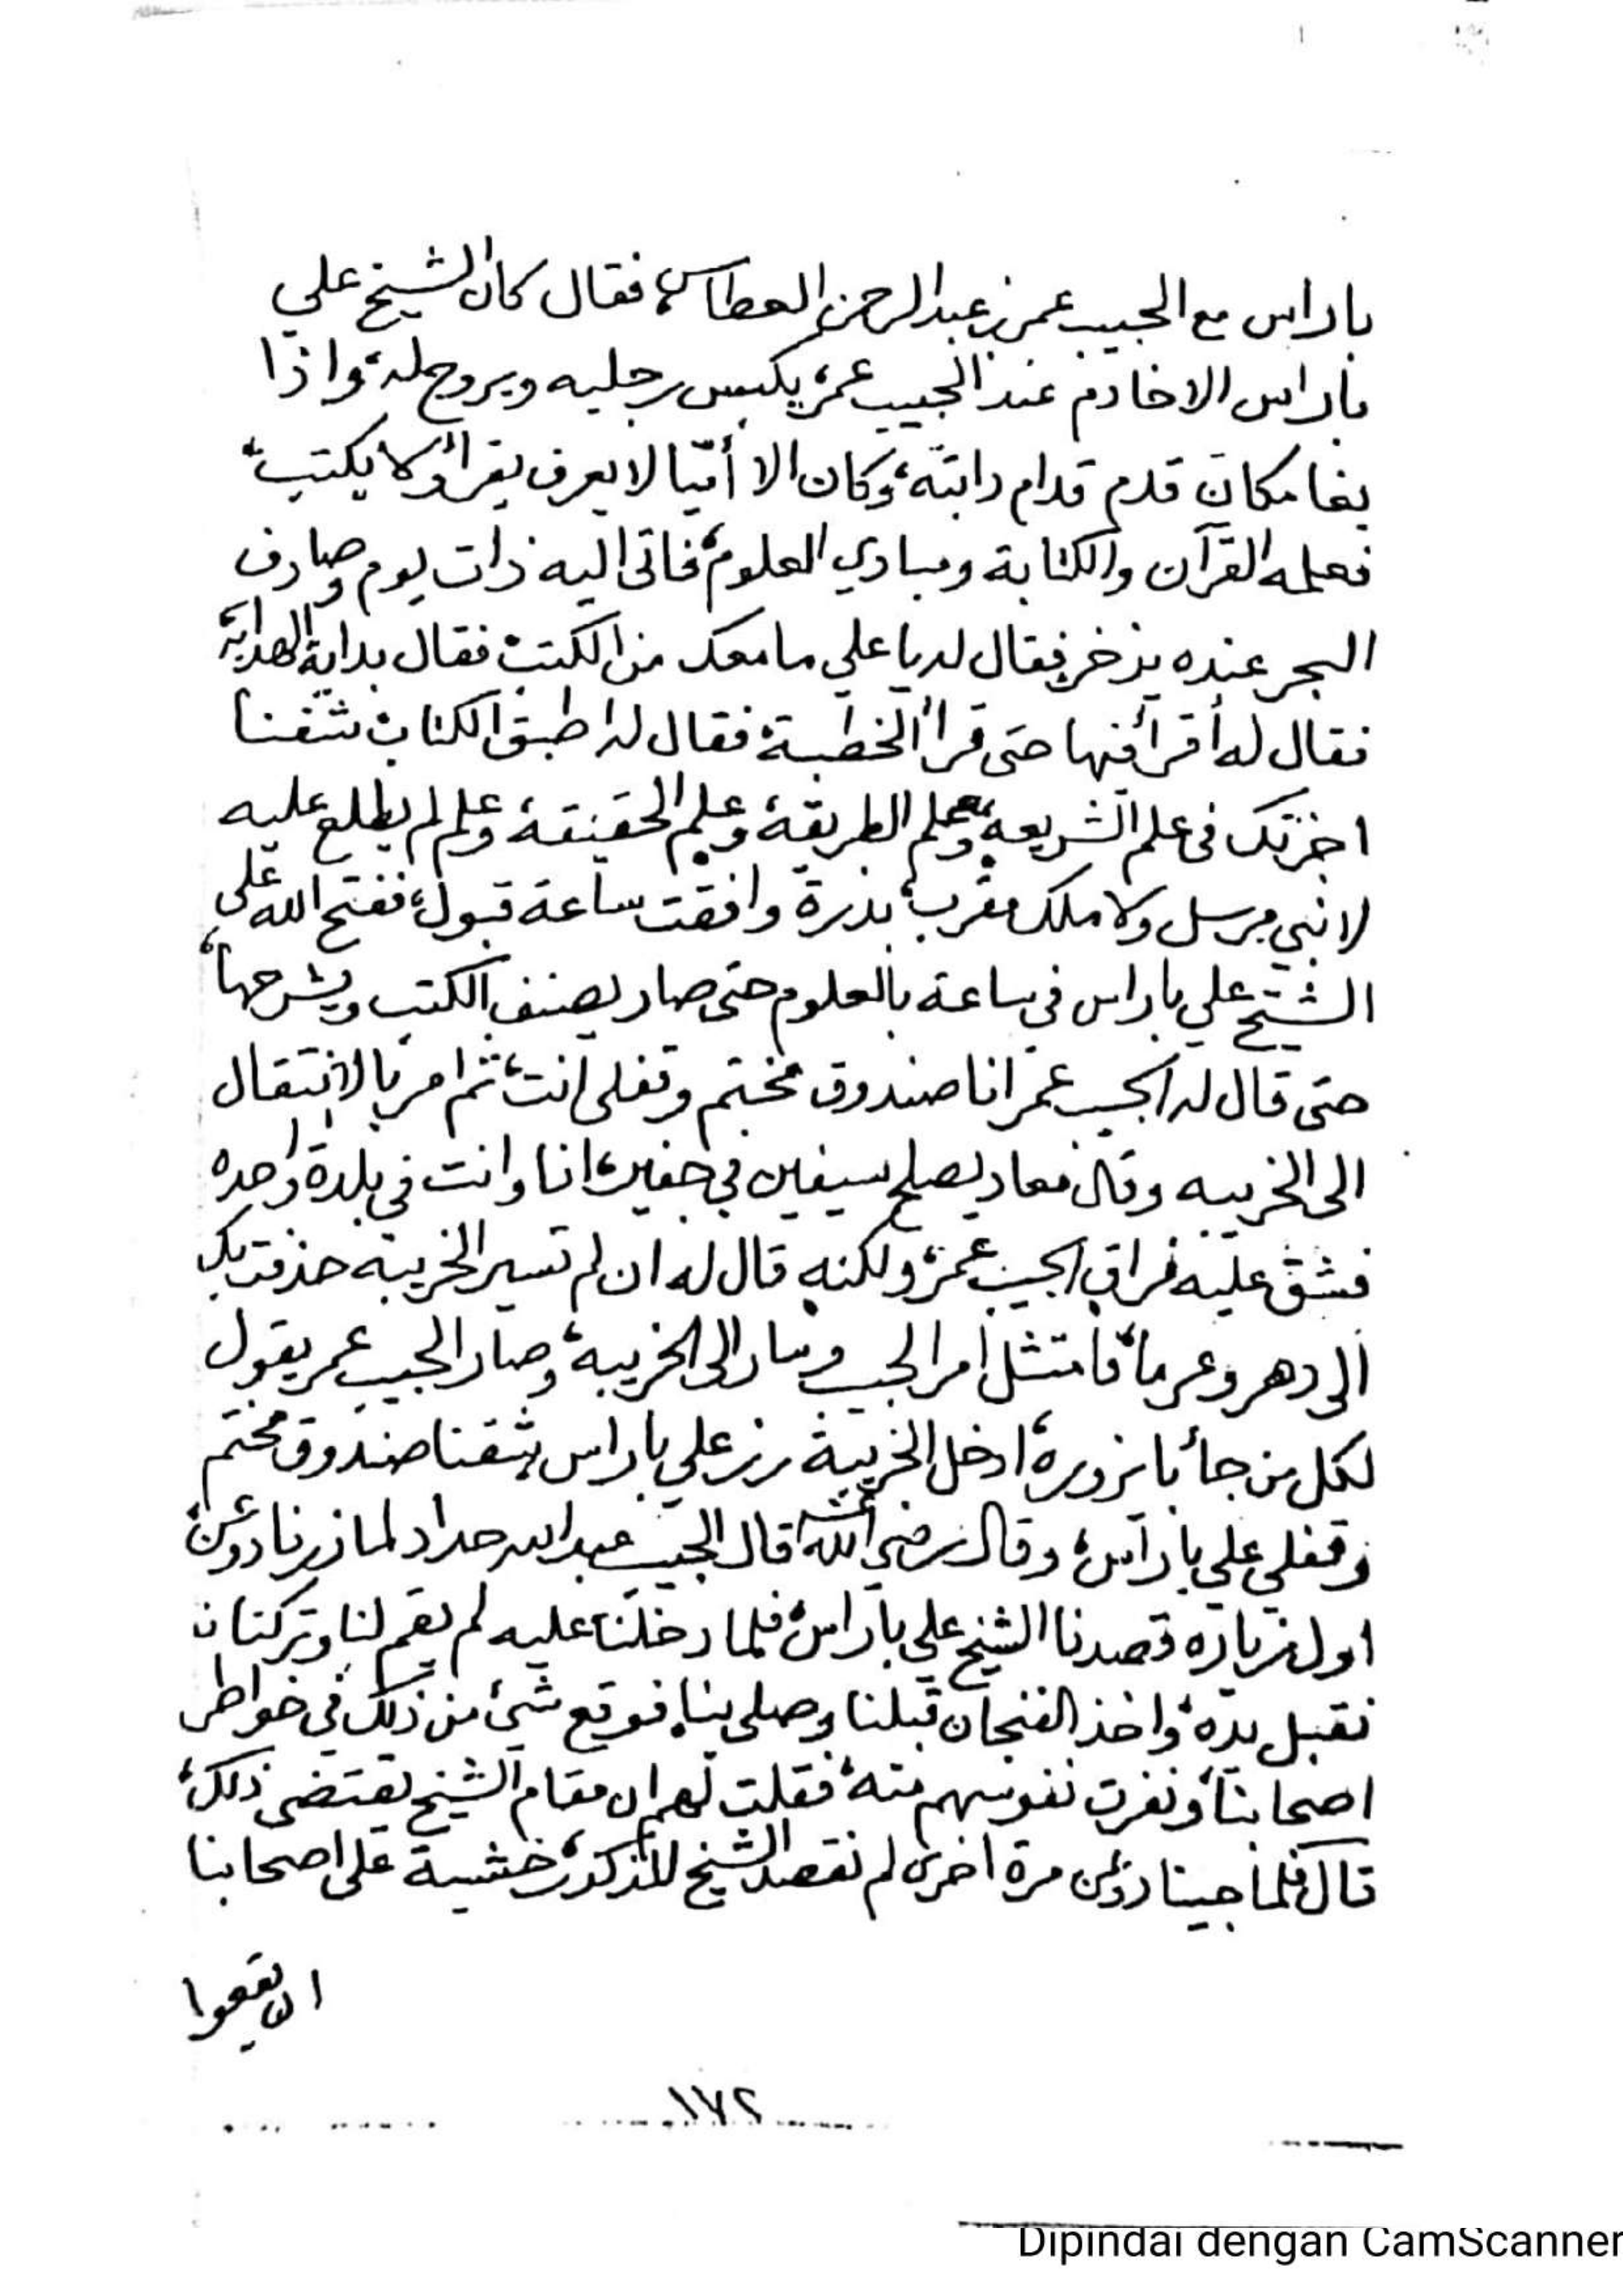 باراس مع الحبيب عمر بن عبدالرحمن العطاس، فقال كان الشيخ علي
باراس الا خادم عند الحبيب عمر، يكبس رجليه ويروح له، واذا
بغا مكان قدم قدام دابته، وكان الا أميا لا يعرف يقرأ ولا يكتب،
فعلمه القرآن والكتابة ومبادي العلوم، فاتى اليه ذات يوم وصادف
البحر عنده يزخر، فقال له يا علي ما معك من الكتب، فقال بداية الهداية،
فقال له أقرأ فيها حتى قرأ الخطبة، فقال له اطبق الكتاب، شفنا
اجزتك في علم الشريعة، وعلم الطريقة، وعلم الحقيقة، وعلم لم يطلع عليه
لا نبي مرسل ولا ملك مقرب، بذرة وافقت ساعة قبول، ففتح الله على
الشيخ علي باراس في ساعة بالعلوم حتى صار يصنف الكتب ويشرحها،
حتى قال له الحبيب عمر انا صندوق مختم وقفلي انت، ثم امر بالانتقال
الى الخريبه وقال معاد يصلح سيفين في جفير، انا وانت في بلدة واحده
فشق عليه فراق الحبيب عمر، ولكنه قال له ان لم تسير الخريبه حذفت بك
الى دهر وعرما، فامتثل امر الحبيب وسار الى الخريبه، وصار الحبيب عمر يقول
لكل من جأ بايزوره، ادخل الخريبة زر علي باراس شفنا صندوق مختم
وقفلي علي باراس، وقال رضي الله عنه قال الحبيب عبدالله حداد لما زرنا دوعن
اول زياره قصدنا الشيخ علي باراس، فلما دخلنا عليه لم يقم لنا وتركنا
نقبل يده، واخذ الفنجان قبلنا وصلى بنا، فوقع شيء من ذلك في خواطر
اصحابنا، ونفرت نفوسهم منه، فقلت لهم ان مقام الشيخ يقتضي ذلك،
قال فلما جينا دوعن مرة اخرى لم نقصد الشيخ المذكور، خشية على اصحابنا
ان يقعوا
١٧٢
Dipindai dengan CamScanner